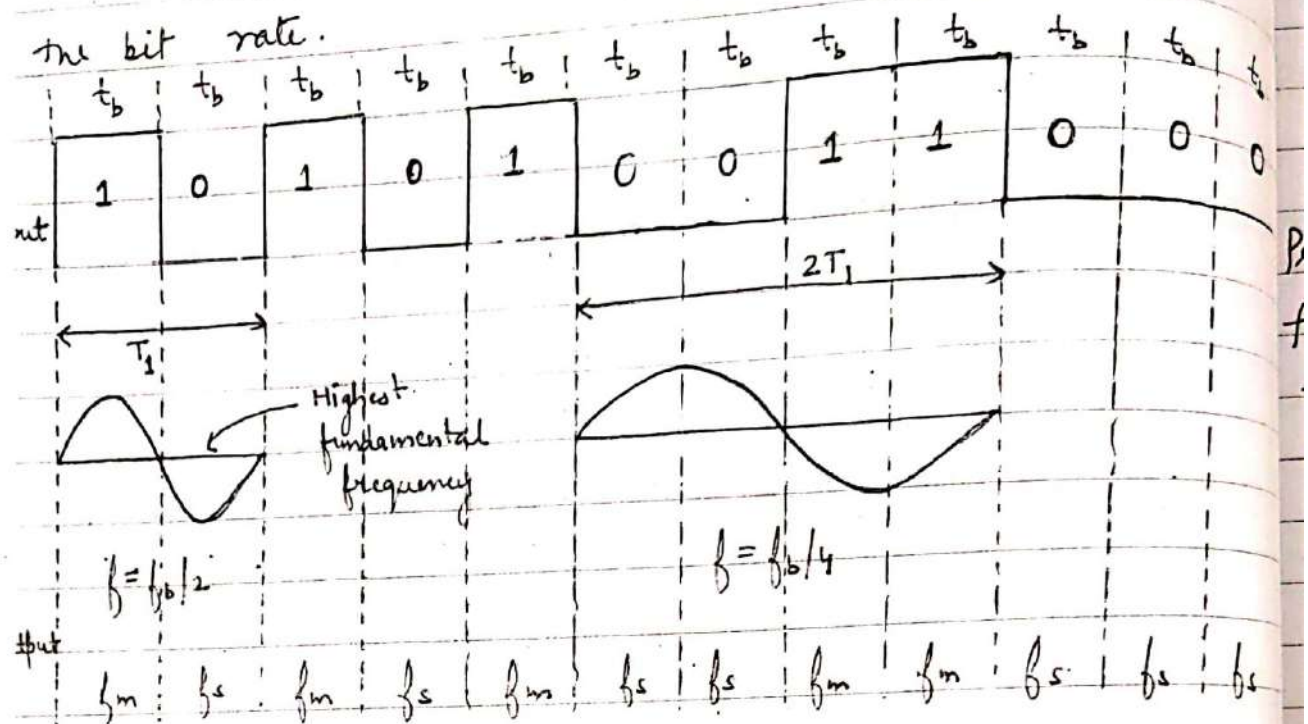 the bit rate.
t_b t_b t_b t_b t_b t_b t_b t_b t_b t_b t_b t_b
1 0 1 0 1 0 0 1 1 0 0 0
T_1
2T_1
Highest
fundamental
frequency
f = f_b/2
f = f_b/4
f_m f_s f_m f_s f_m f_s f_s f_m f_m f_s f_s f_s